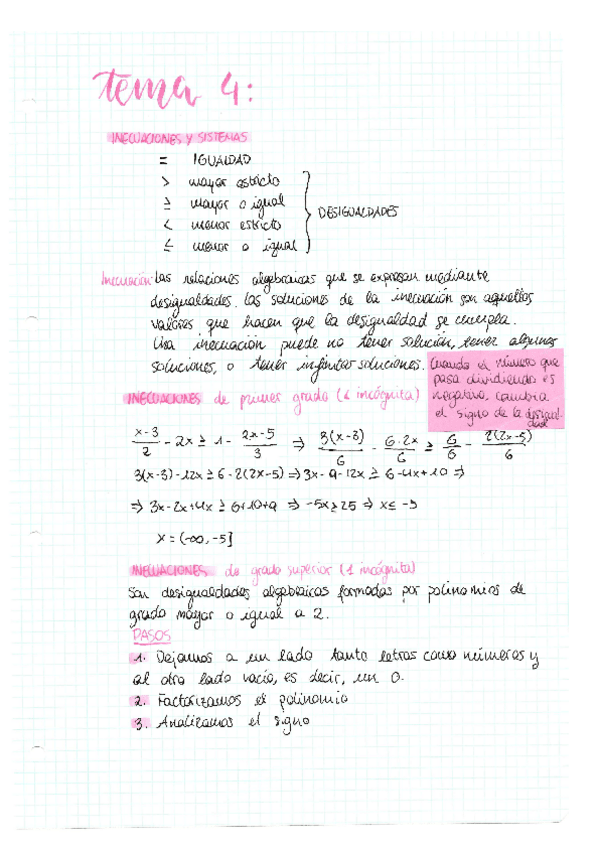 tema 4:
INECUACIONES Y SISTEMAS
= IGUALDAD
> mayor estricto
≥ mayor o igual
< menor estricto
≤ menor o igual
DESIGUALDADES
Inecuación: Las relaciones algebraicas que se expresan mediante
desigualdades. Las soluciones de la inecuación son aquellos
valores que hacen que la desigualdad se cumpla.
Una inecuación puede no tener solución, tener algunas
soluciones, o tener infinitas soluciones.
Cuando el número que
pasa dividiendo es
negativo, cambia
el signo de la desigual-
dad
INECUACIONES de primer grado (1 incógnita)
x-3/2 - 2x ≥ 1 - 2x-5/3 ⇒ 3(x-3)/6 - 6·2x/6 ≥ 6/6 - 2(2x-5)/6
3(x-3)-12x ≥ 6-2(2x-5) ⇒ 3x-9-12x ≥ 6-4x+10 ⇒
⇒ 3x-2x+4x ≥ 6+10+9 ⇒ -5x ≥ 25 ⇒ x ≤ -5
x = (-∞, -5]
INECUACIONES de grado superior (1 incógnita)
Son desigualdades algebraicas formadas por polinomios de
grado mayor o igual a 2.
PASOS
1. Dejamos a un lado tanto letras como números y
al otro lado vacío, es decir, un 0.
2. Factorizamos el polinomio
3. Analizamos el signo